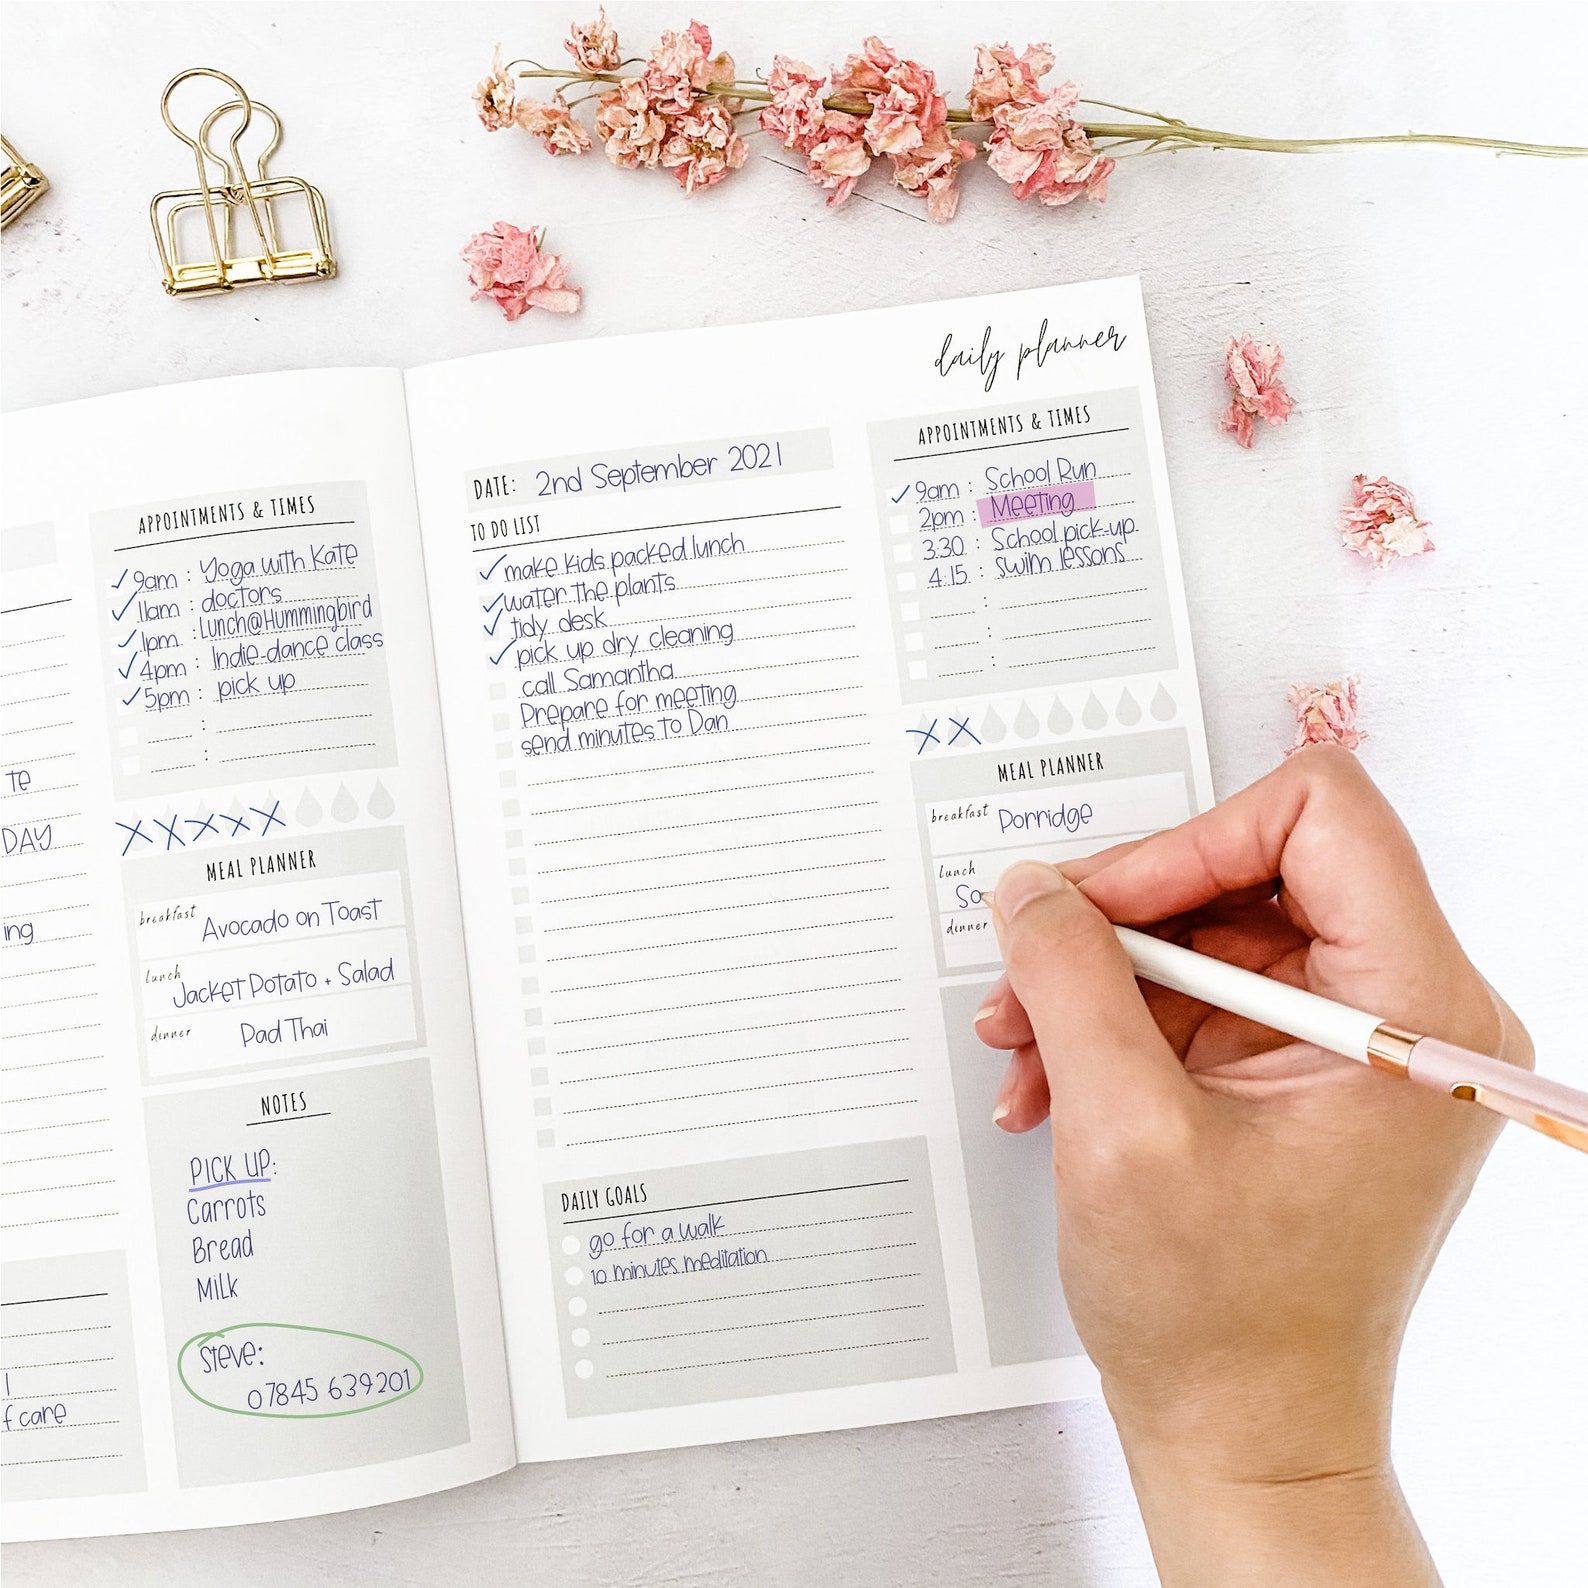 TE
DAY
ing
l
f care
APPOINTMENTS & TIMES
9am : Yoga with Kate
11am : doctors
1pm : Lunch@Hummingbird
4pm : Indie-dance class
5pm : pick up
:
:
MEAL PLANNER
breakfast Avocado on Toast
lunch Jacket Potato + Salad
dinner Pad Thai
NOTES
PICK UP:
Carrots
Bread
Milk
Steve:
07845 639201
daily planner
DATE: 2nd September 2021
TO DO LIST
make kids packed lunch
water the plants
tidy desk
pick up dry cleaning
call Samantha
Prepare for meeting
send minutes to Dan
DAILY GOALS
go for a walk
10 minutes meditation
APPOINTMENTS & TIMES
9am : School Run
2pm : Meeting
3:30 : School pick-up
4:15 : swim lessons
:
:
:
MEAL PLANNER
breakfast Porridge
lunch
So
dinner